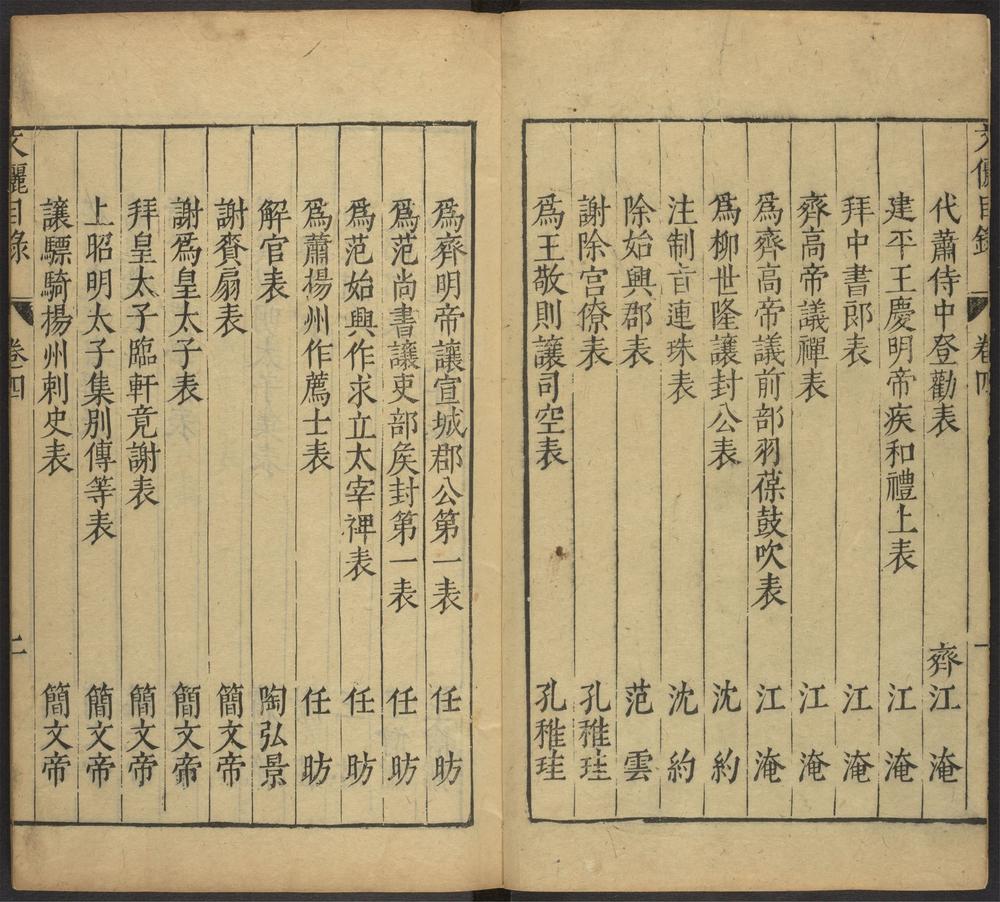 文儷目錄 卷四 一
代蕭侍中登勸表 齊江淹
建平王慶明帝疾和禮上表 江淹
拜中書郎表 江淹
齊高帝議禪表 江淹
爲齊高帝議前部羽葆鼓吹表 江淹
爲柳世隆讓封公表 沈約
注制旨連珠表 沈約
除始興郡表 范雲
謝除宮僚表 孔稚珪
爲王敬則讓司空表 孔稚珪
爲齊明帝讓宣城郡公第一表 任昉
爲范尚書讓吏部矦封第一表 任昉
爲范始興作求立太宰裨表 任昉
爲蕭揚州作薦士表 任昉
解官表 陶弘景
謝賚扇表 簡文帝
謝爲皇太子表 簡文帝
拜皇太子臨軒竟謝表 簡文帝
上昭明太子集別傳等表 簡文帝
讓驃騎揚州刺史表 簡文帝
文儷目錄 卷四 二